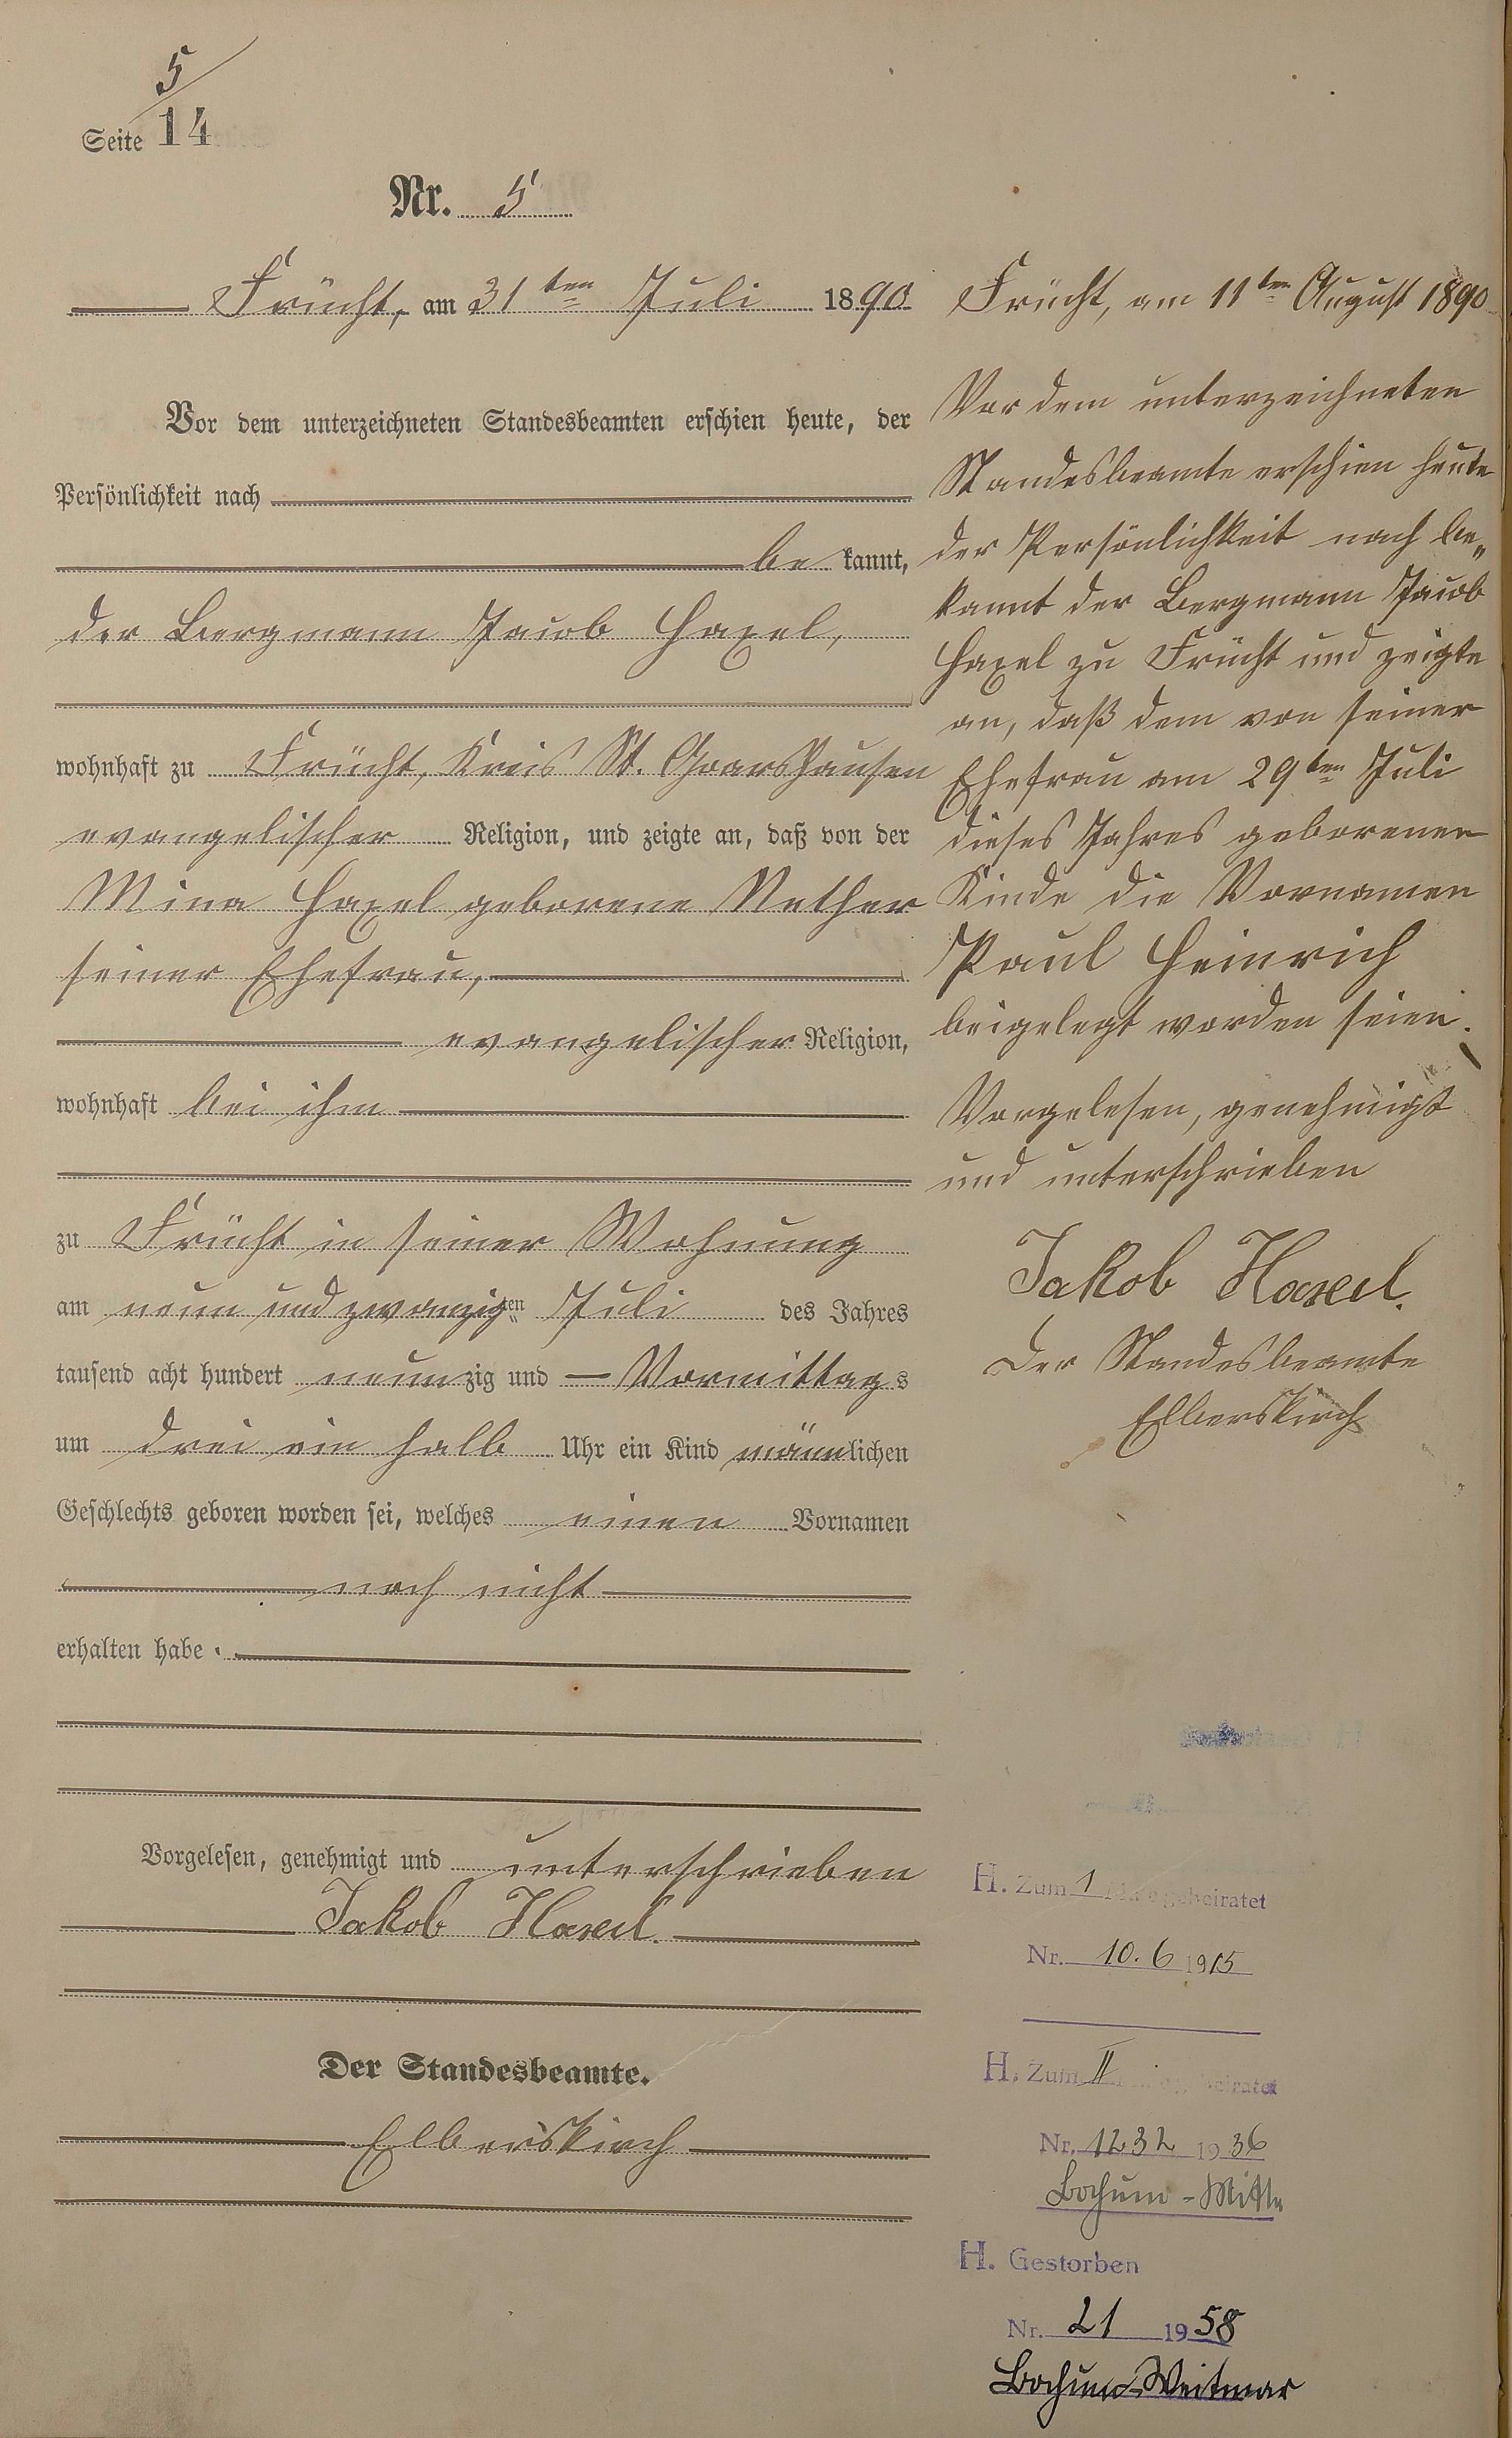 5
Seite 14
Nr. 5
Frücht, am 31ten Juli 1890
Vor dem unterzeichneten Standesbeamten erschien heute, der
Persönlichkeit nach
be kannt,
der Bergmann Jacob Haxel,
wohnhaft zu Frücht, Kreis St. Goarshausen
evangelischer Religion, und zeigte an, daß von der
Mina Haxel geborene Nether
seiner Ehefrau,
evangelischer Religion,
wohnhaft bei ihm
zu Frücht in seiner Wohnung
am neun und zwanzigten Juli des Jahres
tausend acht hundert neunzig und — Vormittags
um drei ein halb Uhr ein Kind männlichen
Geschlechts geboren worden sei, welches einen Vornamen
noch nicht
erhalten habe.
Vorgelesen, genehmigt und unterschrieben
Jakob Haxel.
Der Standesbeamte.
Elberskirch
Frücht, am 11ten August 1890
Vor dem unterzeichneten
Standesbeamte erschien heute
der Persönlichkeit nach be„
kannt der Bergmann Jacob
Haxel zu Frücht und zeigte
an, daß dem von seiner
Ehefrau am 29ten Juli
dieses Jahres geborenen
Kinde die Vornamen
Paul Heinrich
beigelegt worden seien.
Vorgelesen, genehmigt
und unterschrieben
Jakob Haxel.
Der Standesbeamte
Elberskirch
H. Zum 1 geheiratet
Nr. 10.6 1915
H. Zum II geheiratet
Nr. 1232 1936
Bochum-Mitte
H. Gestorben
Nr. 21 1958
Bochum-Weitmar